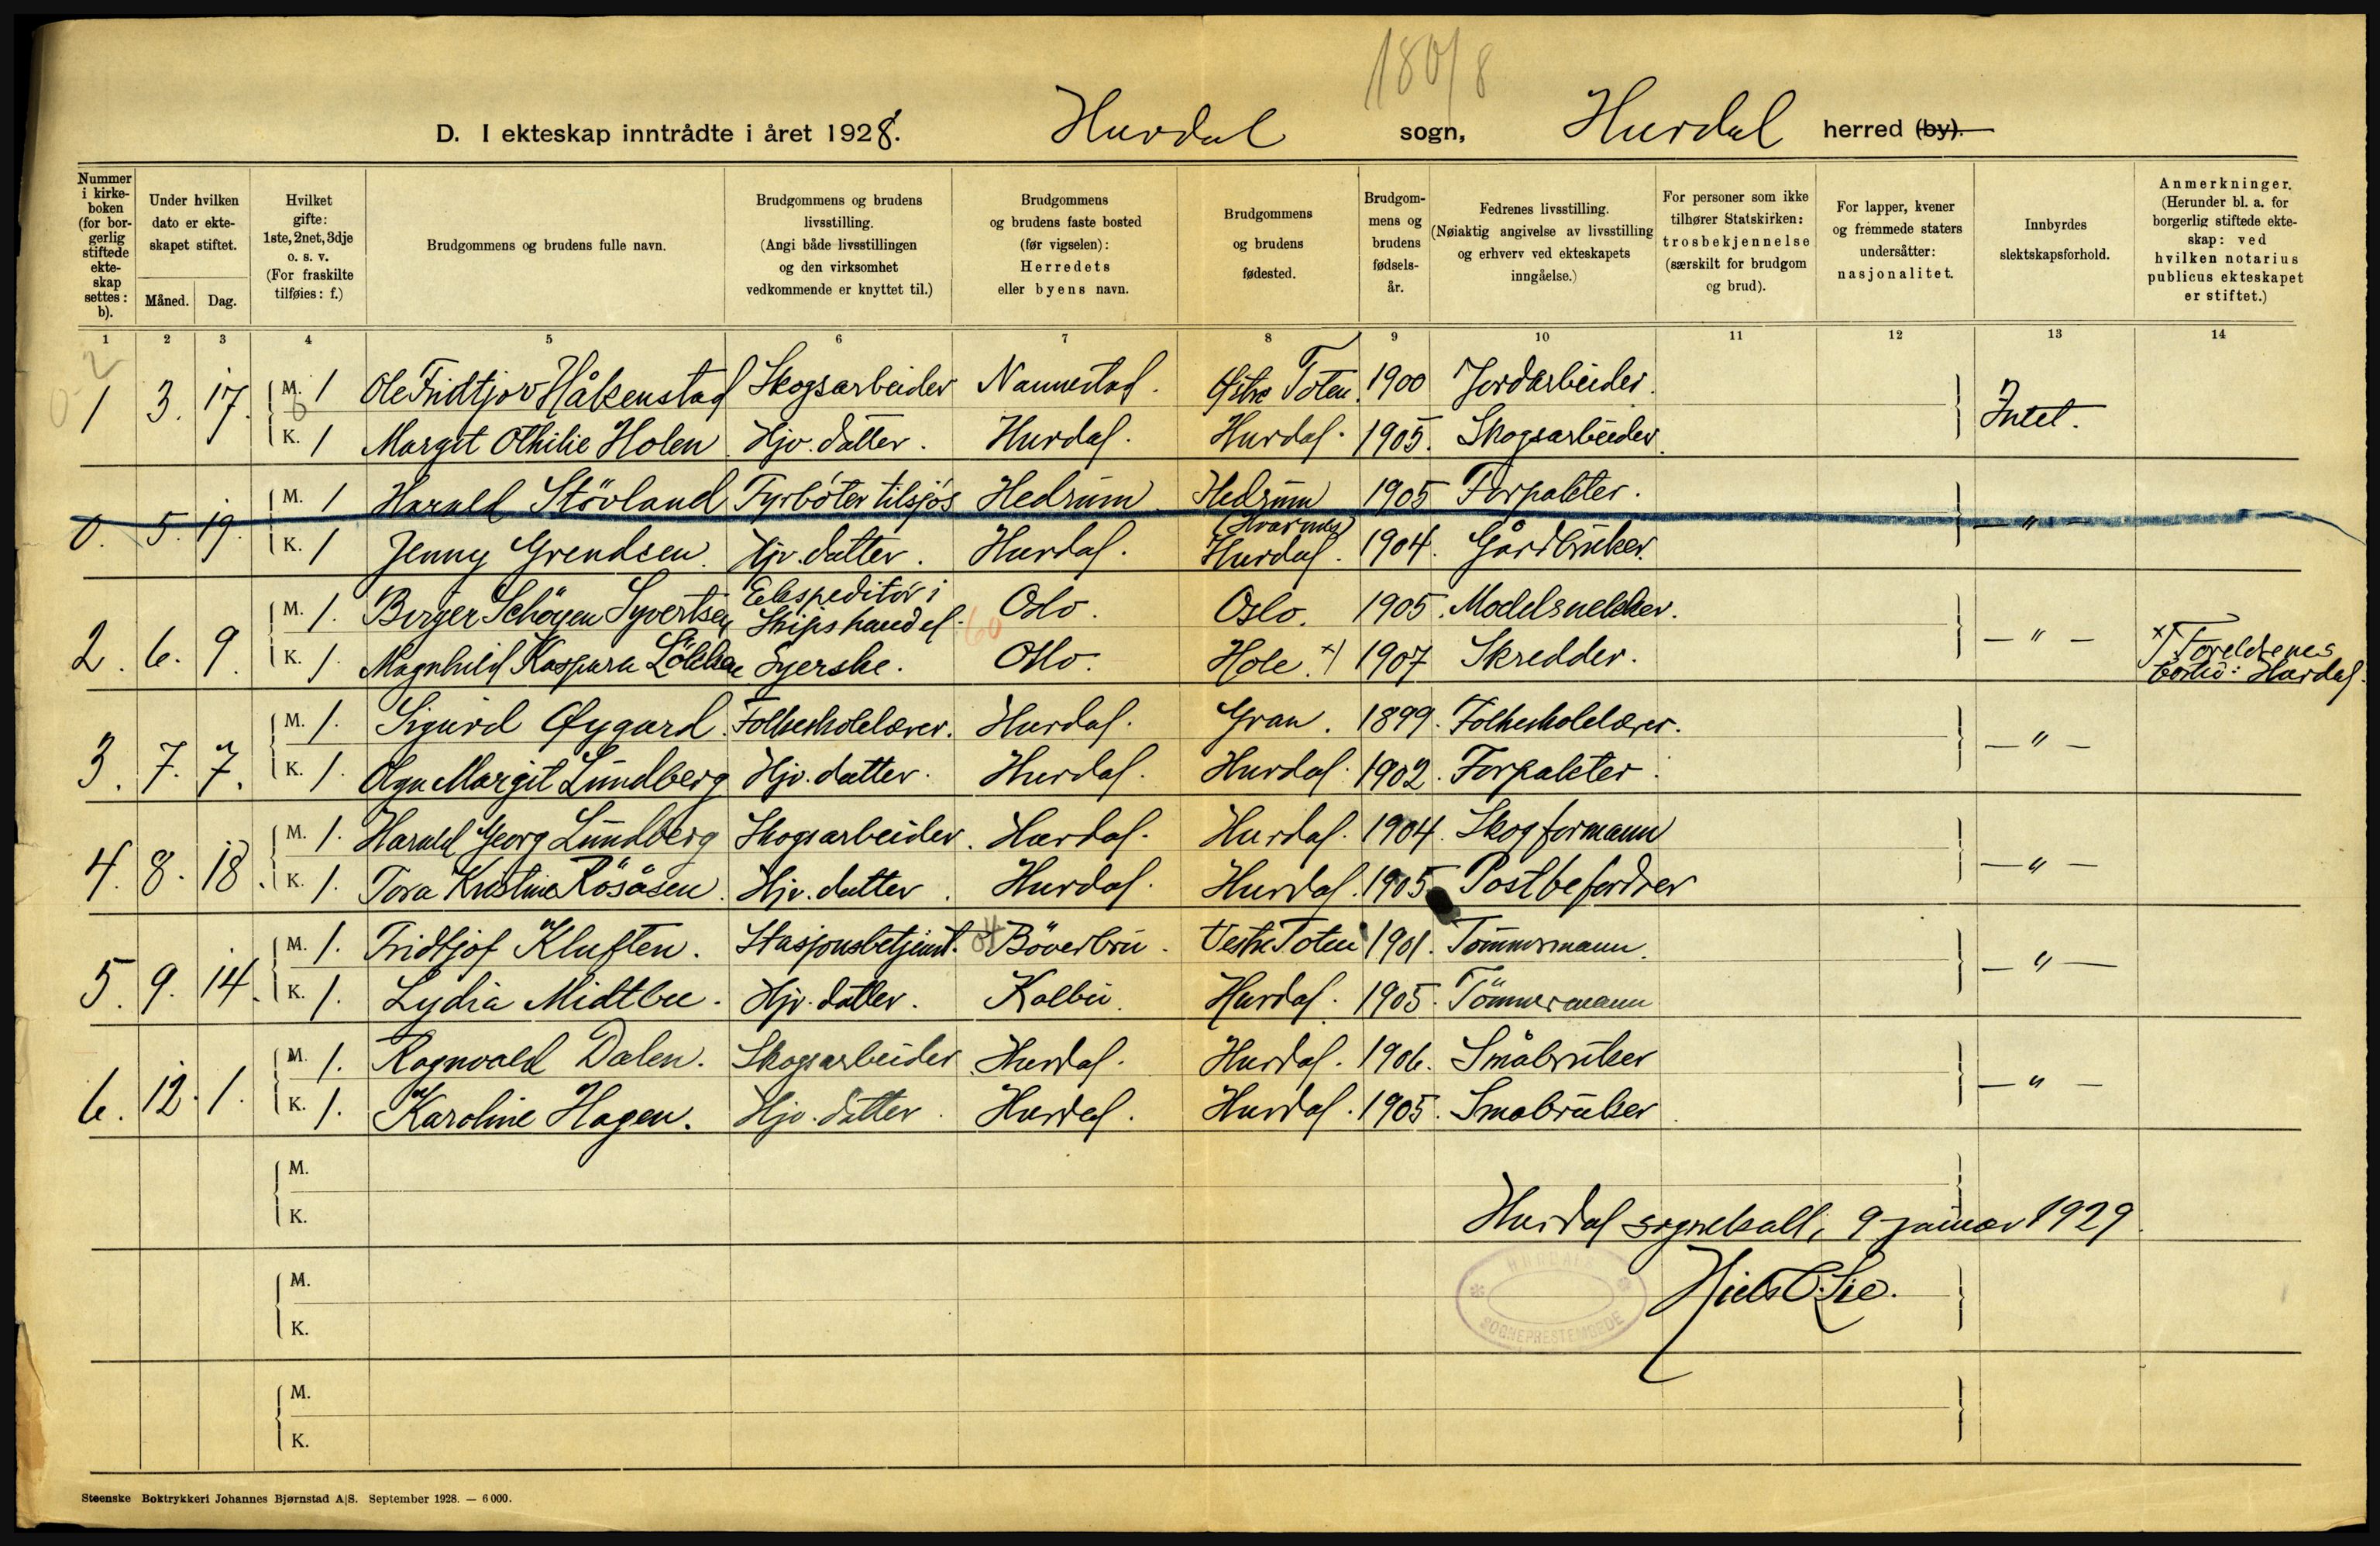 180/8
D. I ekteskap inntrådte i året 1928. Hurdal sogn, Hurdal herred (by).
Nummer i kirkeboken (for borgerlig stiftede ekteskap settes: b).
Under hvilken dato er ekteskapet stiftet.
Måned. Dag.
Hvilket gifte: 1ste, 2net, 3dje o. s. v. (For fraskilte tilføies: f.)
Brudgommens og brudens fulle navn.
Brudgommens og brudens livsstilling. (Angi både livsstillingen og den virksomhet vedkommende er knyttet til.)
Brudgommens og brudens faste bosted (før vigselen): Herredets eller byens navn.
Brudgommens og brudens fødested.
Brudgommens og brudens fødselsår.
Fedrenes livsstilling. (Nøiaktig angivelse av livsstilling og erhverv ved ekteskapets inngåelse.)
For personer som ikke tilhører Statskirken: trosbekjennelse (særskilt for brudgom og brud).
For lapper, kvener og fremmede staters undersåtter: nasjonalitet.
Innbyrdes slektskapsforhold.
Anmerkninger. (Herunder bl. a. for borgerlig stiftede ekteskap: ved hvilken notarius publicus ekteskapet er stiftet.)
1 2 3 4 5 6 7 8 9 10 11 12 13 14
1 3. 17. M. 1 Ole Fridtjov Håkenstad Skogsarbeider Nannestad. Østre Toten. 1900 Jordarbeider. Intet.
K. 1 Margit Othilie Holen Hjv. datter. Hurdal. Hurdal. 1905. Skogsarbeider.
0. 5. 19. M. 1 Harald Stövland Fyrböter tilsjøs Hedrum Hedrum (Hvarnes) 1905 Forpakter. — " —
K. 1 Jenny Grendsen. Hjv. datter. Hurdal. Hurdal. 1904. Gårdbruker.
2. 6. 9. M. 1. Birger Schöyen Syvertsen Ekspeditör i Skipshandel. 60 Oslo. Oslo. 1905. Modelsnekker. — " —
K. 1. Magnhild Kaspara Lökken Syerske. Oslo. Hole. x) 1907 Skredder. x) Foreldrenes bosted: Hurdal.
3. 7. 7. M. 1. Sigurd Øygard. Folkeskolelærer. Hurdal. Gran. 1899. Folkeskolelærer. — " —
K. 1. Olga Margit Lundberg Hjv. datter. Hurdal. Hurdal. 1902. Forpakter.
4. 8. 18. M. 1. Harald Georg Lundberg Skogsarbeider. Hurdal. Hurdal. 1904. Skogformann — " —
K. 1. Tora Kristine Rösåsen. Hjv. datter. Hurdal. Hurdal. 1905 Postbefordrer
5. 9. 14. M. 1. Fridtjof Kluften. Stasjonsbetjent. Böverbru. Vestre Toten 1901. Tömmermann. — " —
K. 1. Lydia Midtbu. Hjv. datter. Kolbu. Hurdal. 1905. Tömmermann
6. 12. 1. M. 1. Ragnvald Dalen. Skogsarbeider Hurdal. Hurdal. 1906. Småbruker — " —
K. 1. Karoline Hagen. Hjv. datter. Hurdal. Hurdal. 1905. Småbruker
M.
K.
Hurdal sognekall, 9 januar 1929.
M.
K.
HURDALS SOGNEPRESTEMBEDE
Niels O. Lie.
M.
K.
Steenske Boktrykkeri Johannes Bjørnstad A|S. September 1928. — 6000.